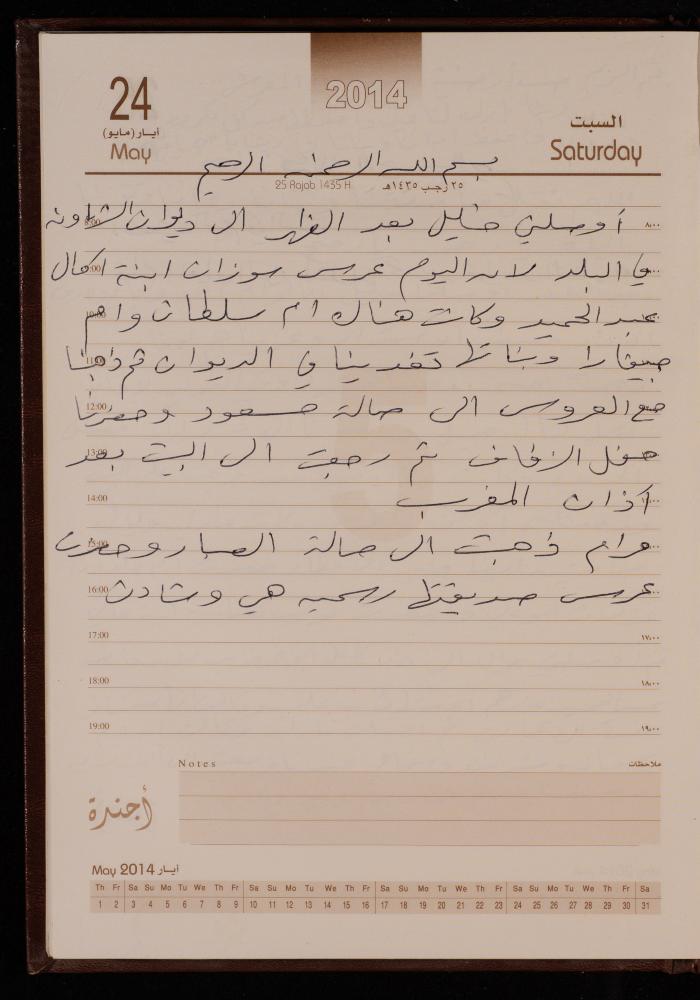 24
أيار (مايو)
May
2014
السبت
Saturday
بسم الله الرحمن الرحيم
25 Rajab 1435 H
٢٥ رجب ١٤٣٥هـ
أوصلني خليل بعد الظهر الى ديوان الشاونه
8:00 ٨،٠٠
في البلد لانه اليوم عرس سوزان ابنة اكمال
9:00
عبد الحميد وكانت هناك ام سلطان وام
10:00
وبناتها تغدينا في الديوان ثم ذهبنا
11:00
مع العروس الى صالة مسعود وحضرنا
12:00
حفل الزفاف ثم رجعت الى البيت بعد
13:00
آذان المغرب
14:00
مرام ذهبت الى صالة الصبار وحضرت
15:00
عرس صديقتها رسميه هي وشادن
16:00
17:00 ١٧،٠٠
18:00 ١٨،٠٠
19:00 ١٩،٠٠
Notes ملاحظات
أجندة
May 2014 أيار
Th Fr Sa Su Mo Tu We Th Fr Sa Su Mo Tu We Th Fr Sa Su Mo Tu We Th Fr Sa Su Mo Tu We Th Fr Sa
1 2 3 4 5 6 7 8 9 10 11 12 13 14 15 16 17 18 19 20 21 22 23 24 25 26 27 28 29 30 31